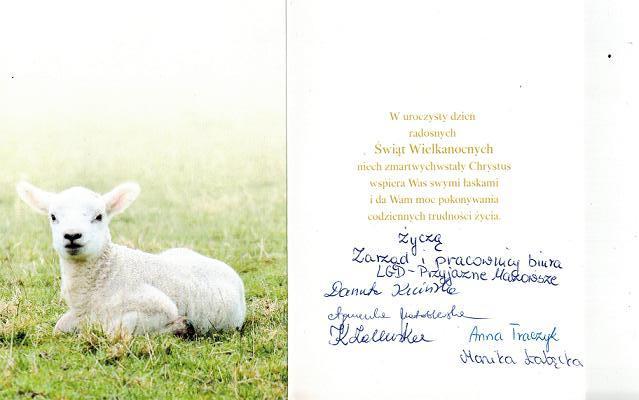 W uroczysty dzień
radosnych
Świąt Wielkanocnych
niech zmartwychwstały Chrystus
wspiera Was swymi łaskami
i da Wam moc pokonywania
codziennych trudności życia.
życzą
Zarząd i pracownicy biura
LGD-Przyjazne Mazowsze
Danuta
Anna Traczyk
Monika